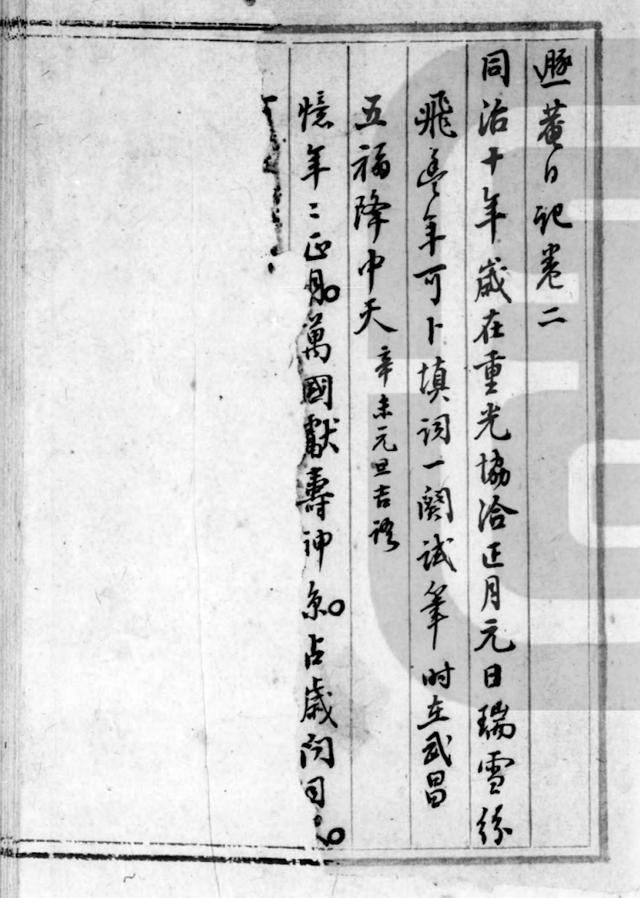 遯菴日記卷二
同治十年歲在重光協洽正月元日瑞雪紛
飛豐年可卜填詞一闋試筆時在武昌
五福降中天 辛未元旦吉語
憶年二正月。萬國獻壽神京。占歲問同